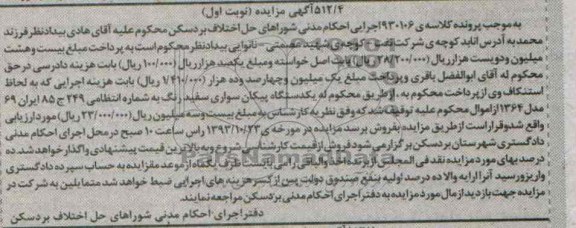 ۵۱۲/۴ آگهی مزایده (نوبت اول)
به موجب پرونده کلاسه ی ۹۳۰۱۰۶ اجرایی احکام مدنی شوراهای حل اختلاف بردسکن محکوم علیه آقای هادی بیدادنظر فرزند
محمد به آدرس انابد کوچه ی شرکت نفت - کوچه ی شهید نعمتی - نانوایی بیدادنظر محکوم است به پرداخت مبلغ بیست و هشت
میلیون و دویست هزار ریال (۲۸/۲۰۰/۰۰۰ ریال) بابت اصل خواسته و مبلغ یکصد هزار ریال (۱۰۰/۰۰۰ ریال) بابت هزینه دادرسی در حق
محکوم له آقای ابوالفضل باقری و پرداخت مبلغ یک میلیون و چهارصد و ده هزار (۱/۴۱۰/۰۰۰ ریال) بابت هزینه اجرایی که به لحاظ
استنکاف وی از پرداخت محکوم به، از طریق محکوم له یکدستگاه پیکان سواری سفید رنگ به شماره انتظامی ۲۴۹ ج ۸۵ ایران ۶۹
مدل ۱۳۶۴ از اموال محکوم علیه توقیف شد که وفق نظر به کارشناس به مبلغ بیست و سه میلیون ریال (۲۳/۰۰۰/۰۰۰ ریال) مورد ارزیابی
واقع شد و قرار است از طریق مزایده بفروش برسد مزایده در مورخه ی ۱۳۹۳/۱۰/۲۳ راس ساعت ۱۰ صبح در محل اجرای احکام مدنی
دادگستری شهرستان بردسکن برگزار می شود فروش از قیمت کارشناسی شروع و به بالاترین قیمت پیشنهادی واگذار خواهد شد. ده
درصد بهای مورد مزایده نقد فی المجلس از برنده اخذ و الباقی را می بایست ظرف یکماه از موعد مزایده به حساب سپرده دادگستری
واریز و رسید آنرا ارایه والا ده درصد اولیه بنفع صندوق دولت پس از کسر هزینه های اجرایی ضبط خواهد شد متمایلین به شرکت در
مزایده جهت بازدید از مال مورد مزایده به دفتر اجرای احکام مدنی بردسکن مراجعه نمایند.
دفتر اجرای احکام مدنی شوراهای حل اختلاف بردسکن